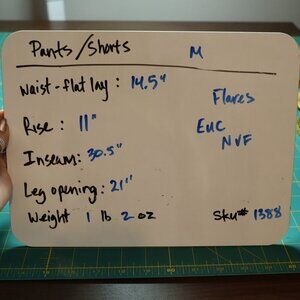 Pants/Shorts M
Waist-flat lay: 14.5"
Flares
Rise: 11"
EUC
NVF
Inseam: 30.5"
Leg opening: 21"
Weight 1 lb 2 oz
Sku# 1388